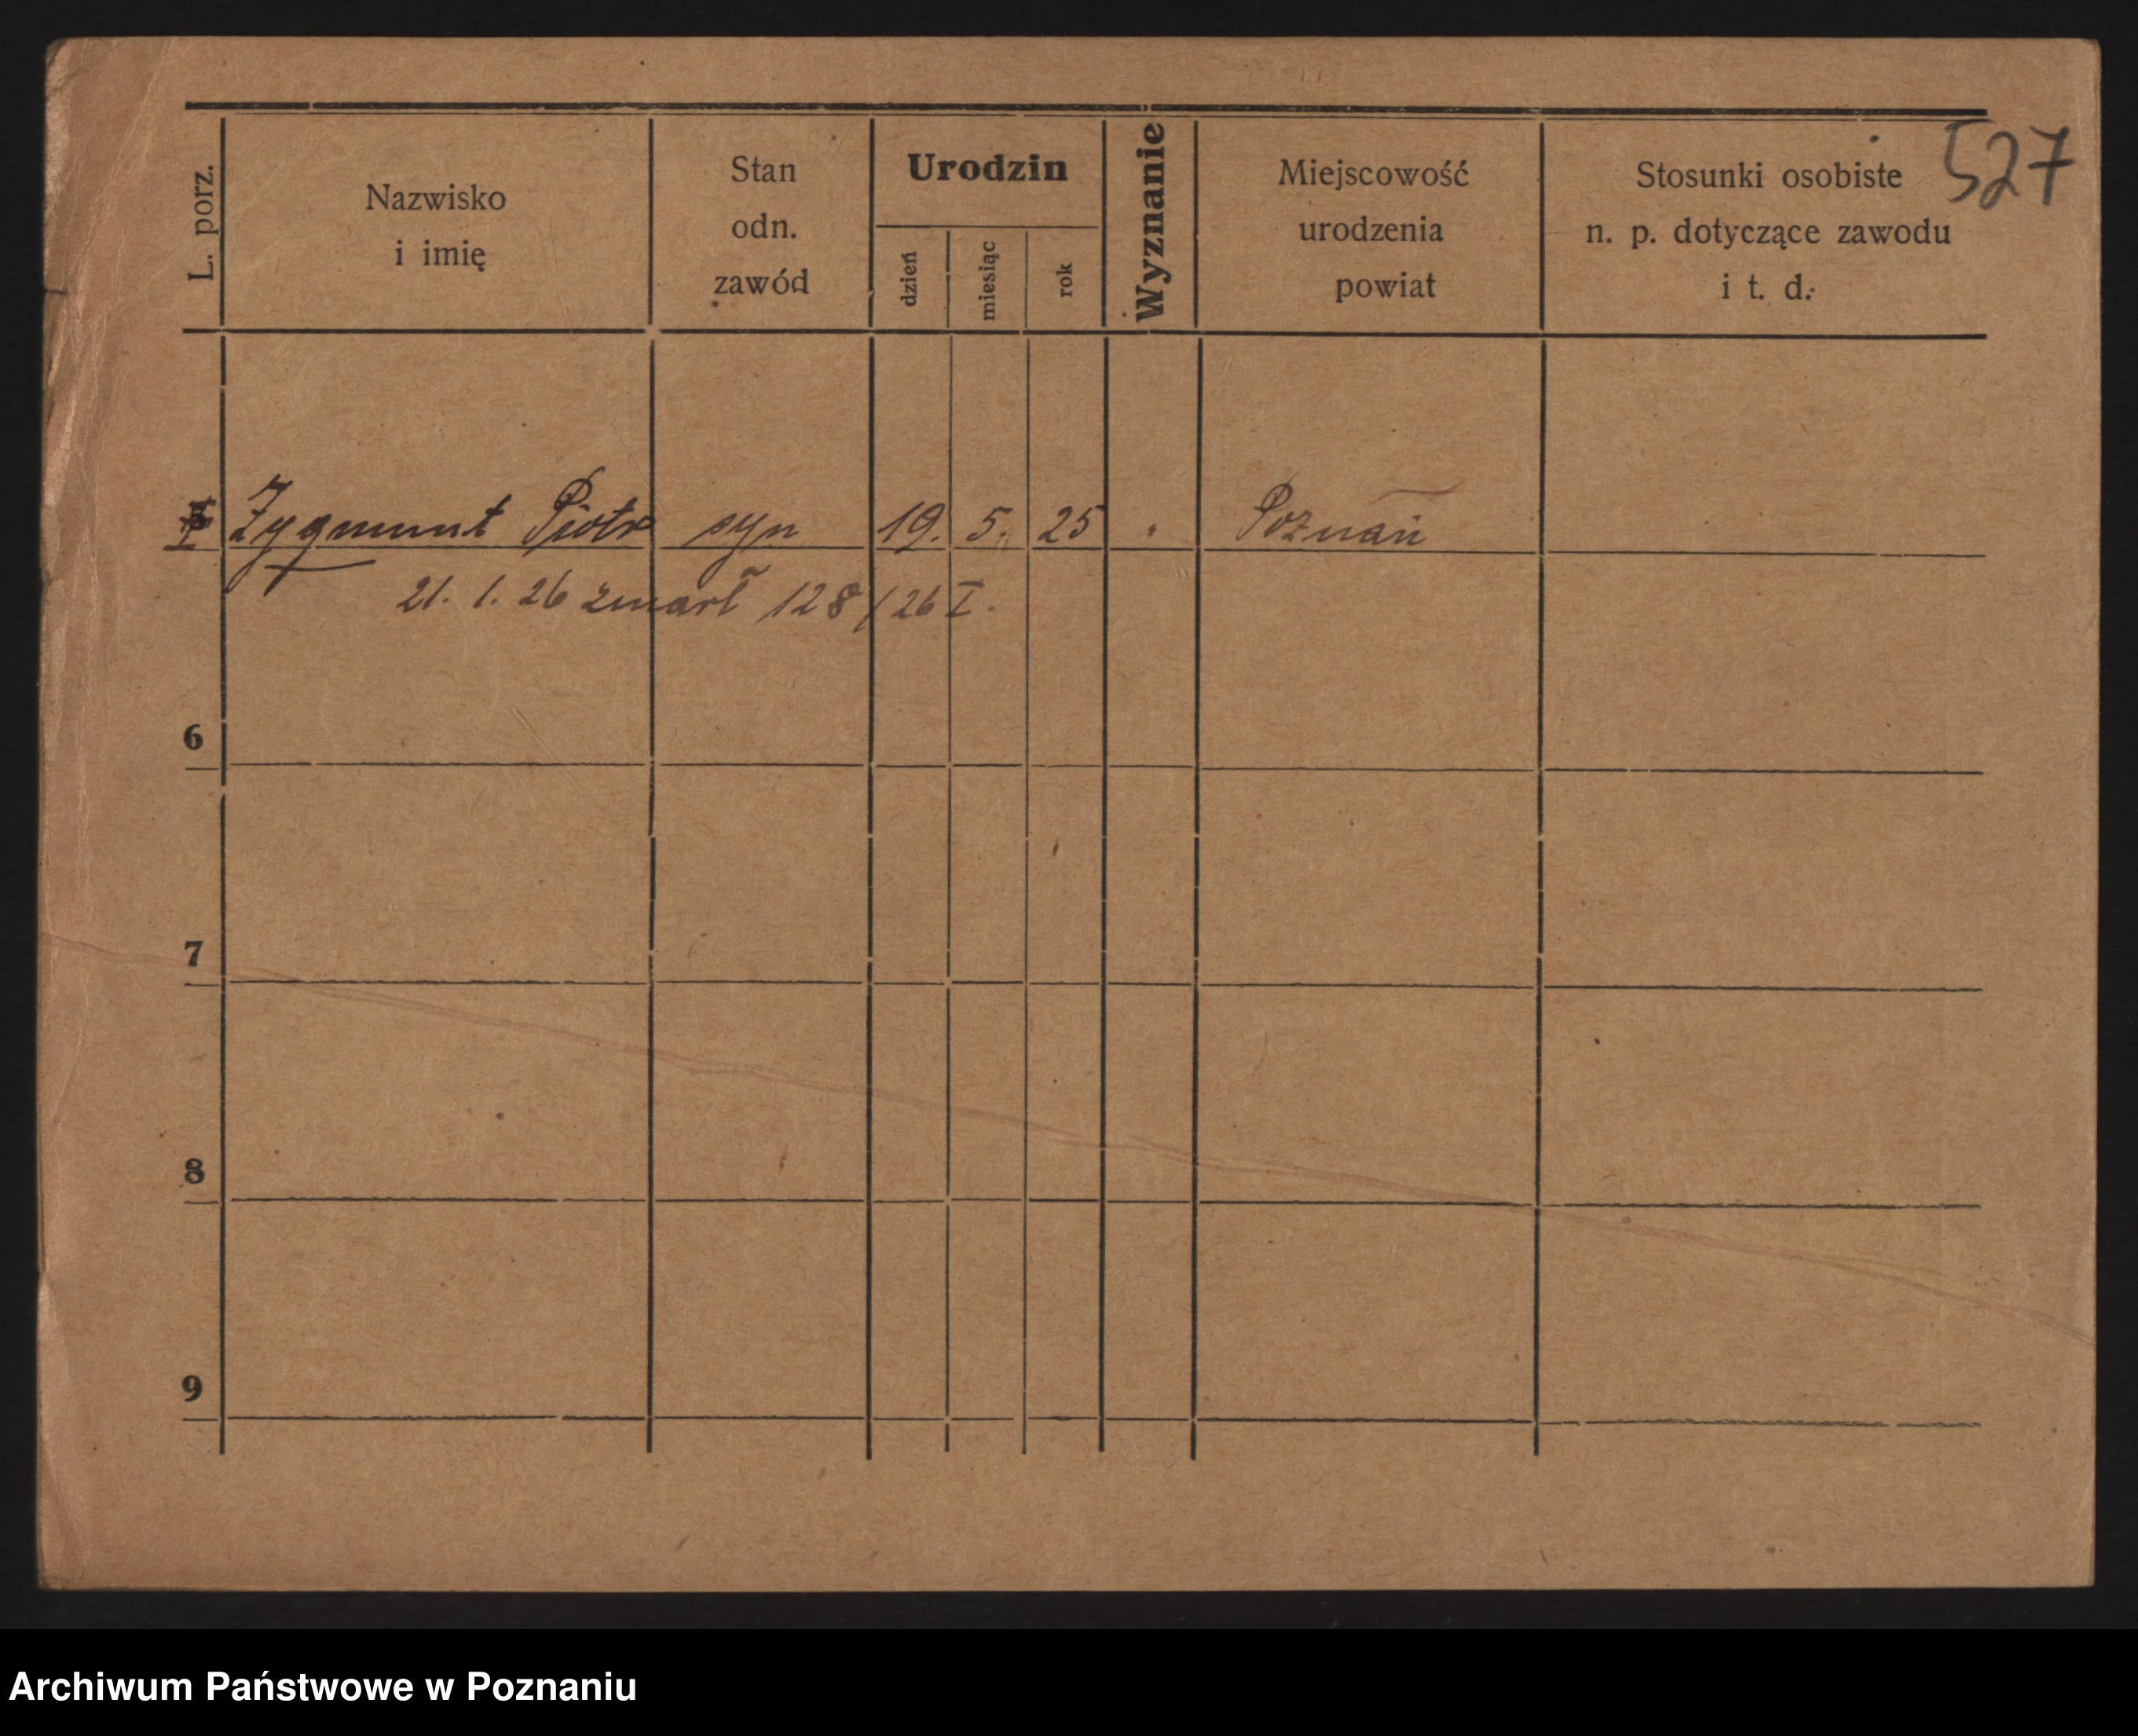 527
L. porz.
Nazwisko
i imię
Stan
odn.
zawód
Urodzin
dzień
miesiąc
rok
Wyznanie
Miejscowość
urodzenia
powiat
Stosunki osobiste
n. p. dotyczące zawodu
i t. d.
Zygmunt Piotr syn 19. 5. 25 " Poznań
21. 1. 26 zmarł 128/26 I.
6
7
8
9
Archiwum Państwowe w Poznaniu